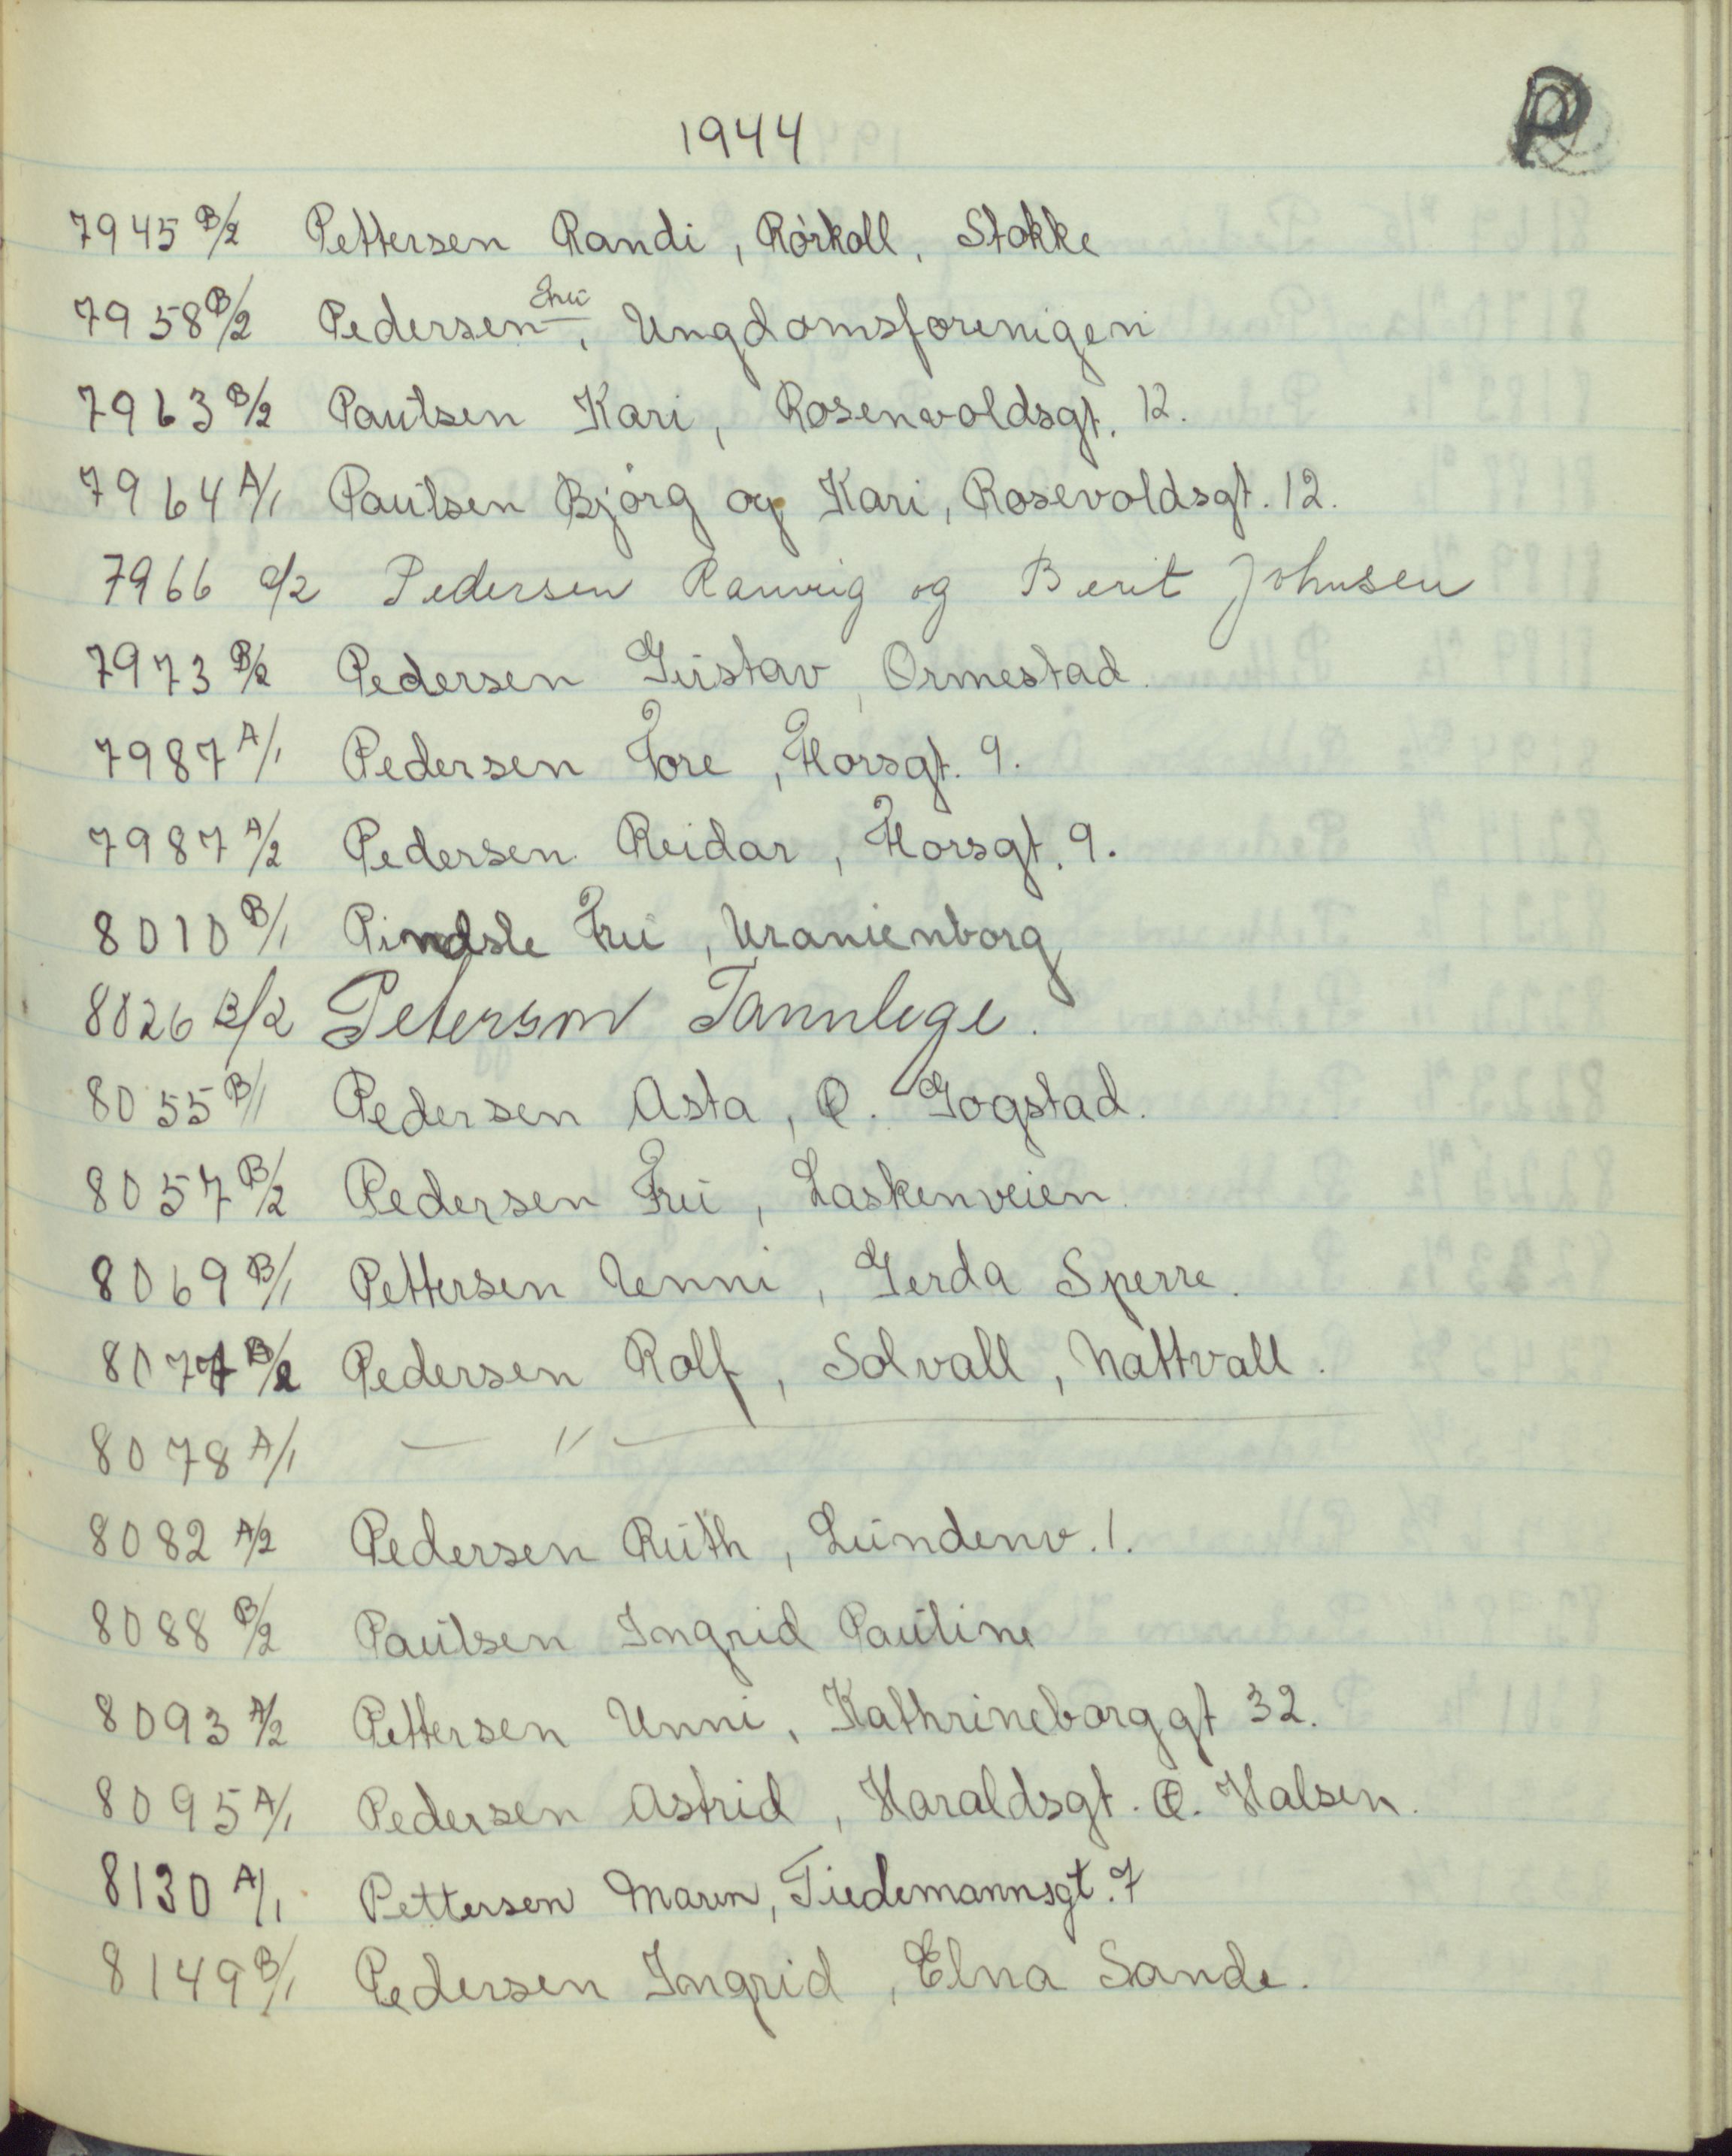 P
1944
7945 B/2 Pettersen Randi, Rørkoll, Stokke
7958 B/2 Pedersen Fru, Ungdomsforenigen
7963 B/2 Paulsen Kari, Rosenvoldsgt. 12.
7964 A/1 Paulsen Bjørg og Kari, Rosevoldsgt. 12.
7966 a/2 Pedersen Ranveig og Berit Johnsen
7973 B/2 Pedersen Gustav, Ormestad.
7987 A/1 Pedersen Tore, Thorsgt. 9.
7987 A/2 Pedersen Reidar, Thorsgt. 9.
8010 B/1 Pindsle Fru, Uranienborg
8026 B/2 Peterson Tannlege.
8055 B/1 Pedersen Asta, Ø. Gogstad.
8057 B/2 Pedersen Fru, Laskenveien.
8069 B/1 Pettersen Unni, Gerda Sperre.
8077 B/2 Pedersen Rolf, Solvall, Nattvall.
8078 A/1 — " —
8082 A/2 Pedersen Ruth, Lundenv. 1.
8088 B/2 Paulsen Ingrid Pauline
8093 A/2 Pettersen Unni, Kathrineborggt 32.
8095 A/1 Pedersen Astrid, Haraldsgt. Ø. Halsen.
8130 A/1 Pettersen Maren, Tiedemannsgt. 7
8149 B/1 Pedersen Ingrid, Elna Sande.